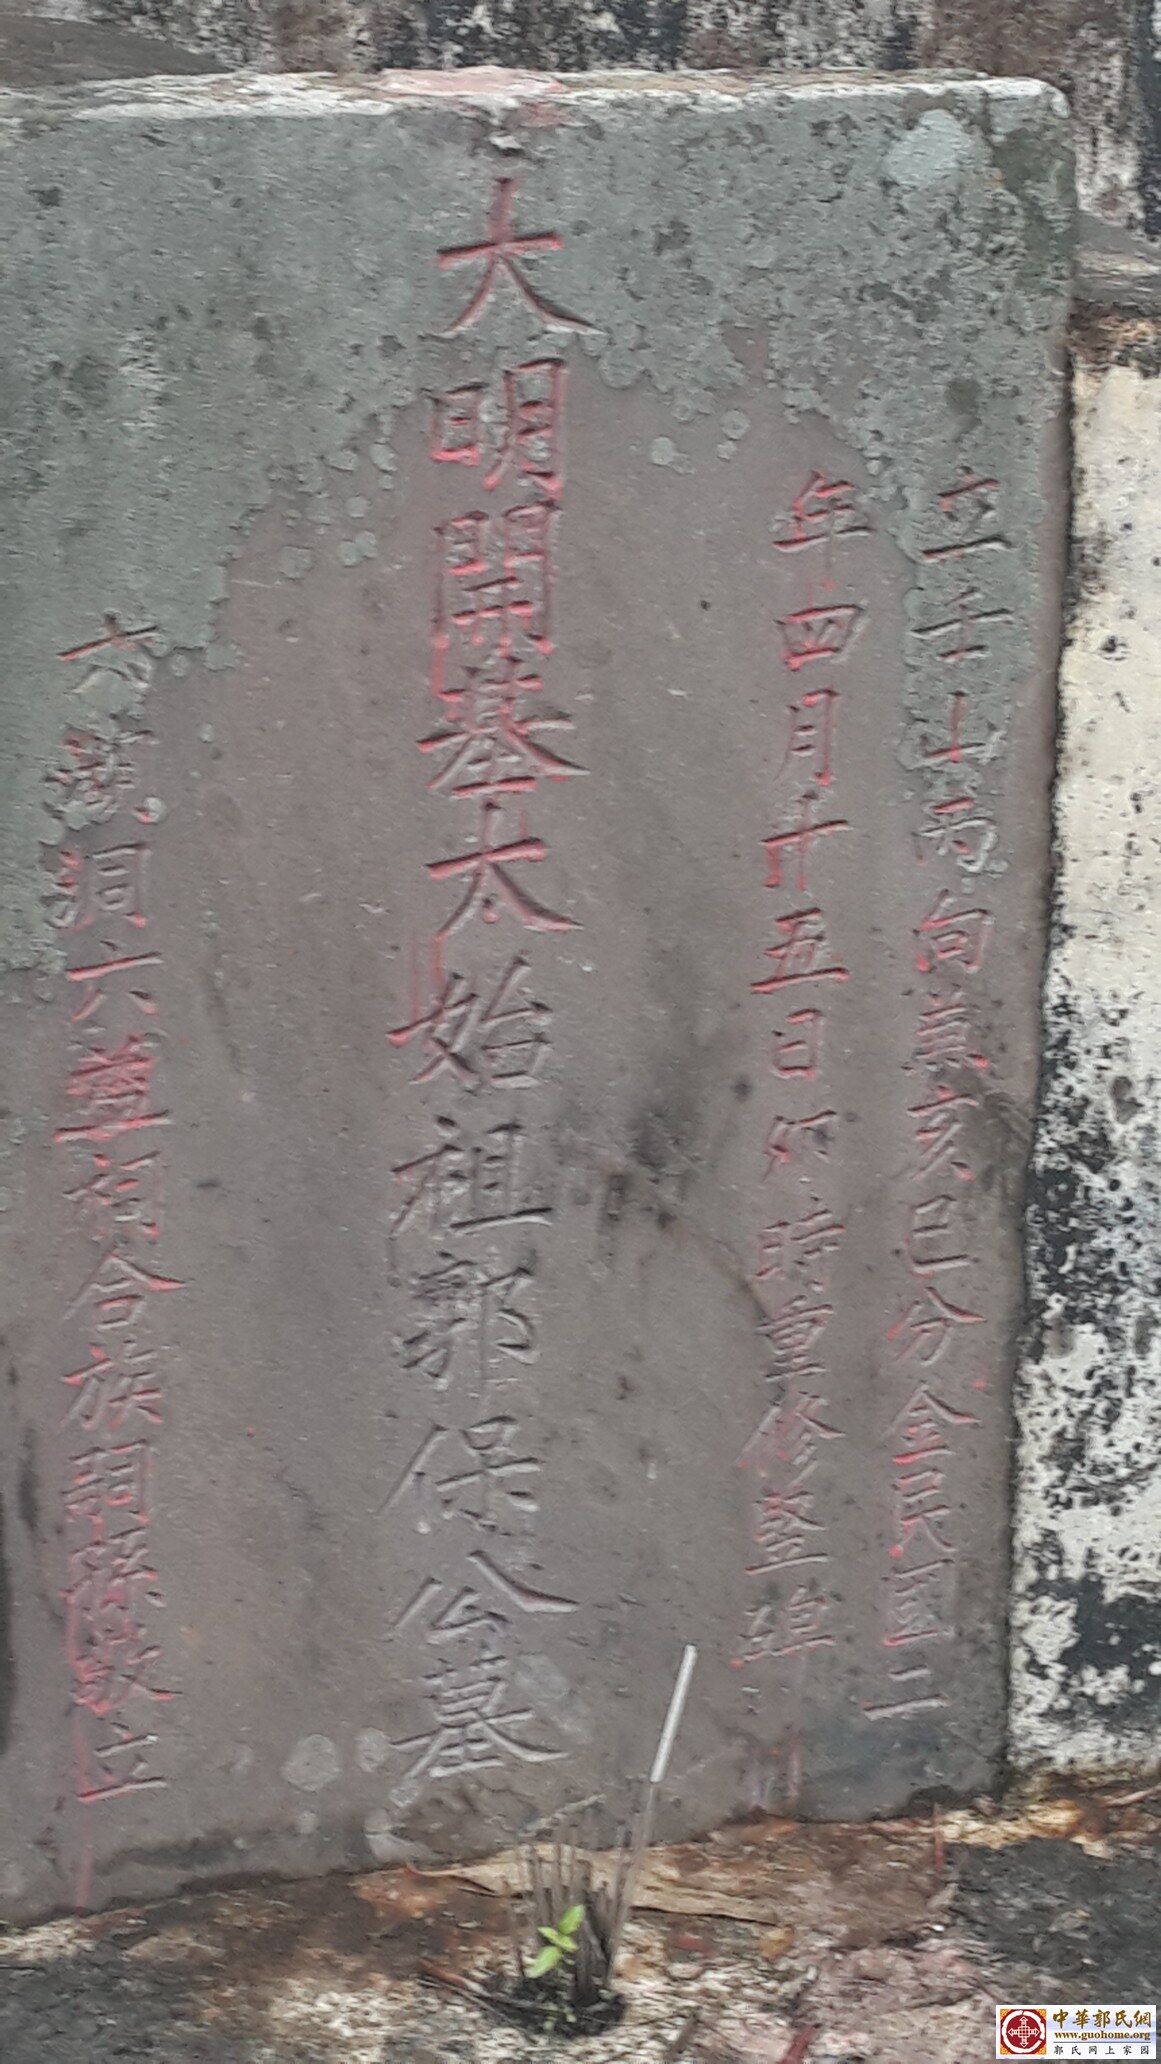 立壬山丙向兼亥巳分金民國二
年四月十五日卯時重修竪碑
大明開基太始祖郭保公墓
大 洞六 祠合族嗣孫敬立
中華郭氏網
www.guohome.org
郭氏网上家园